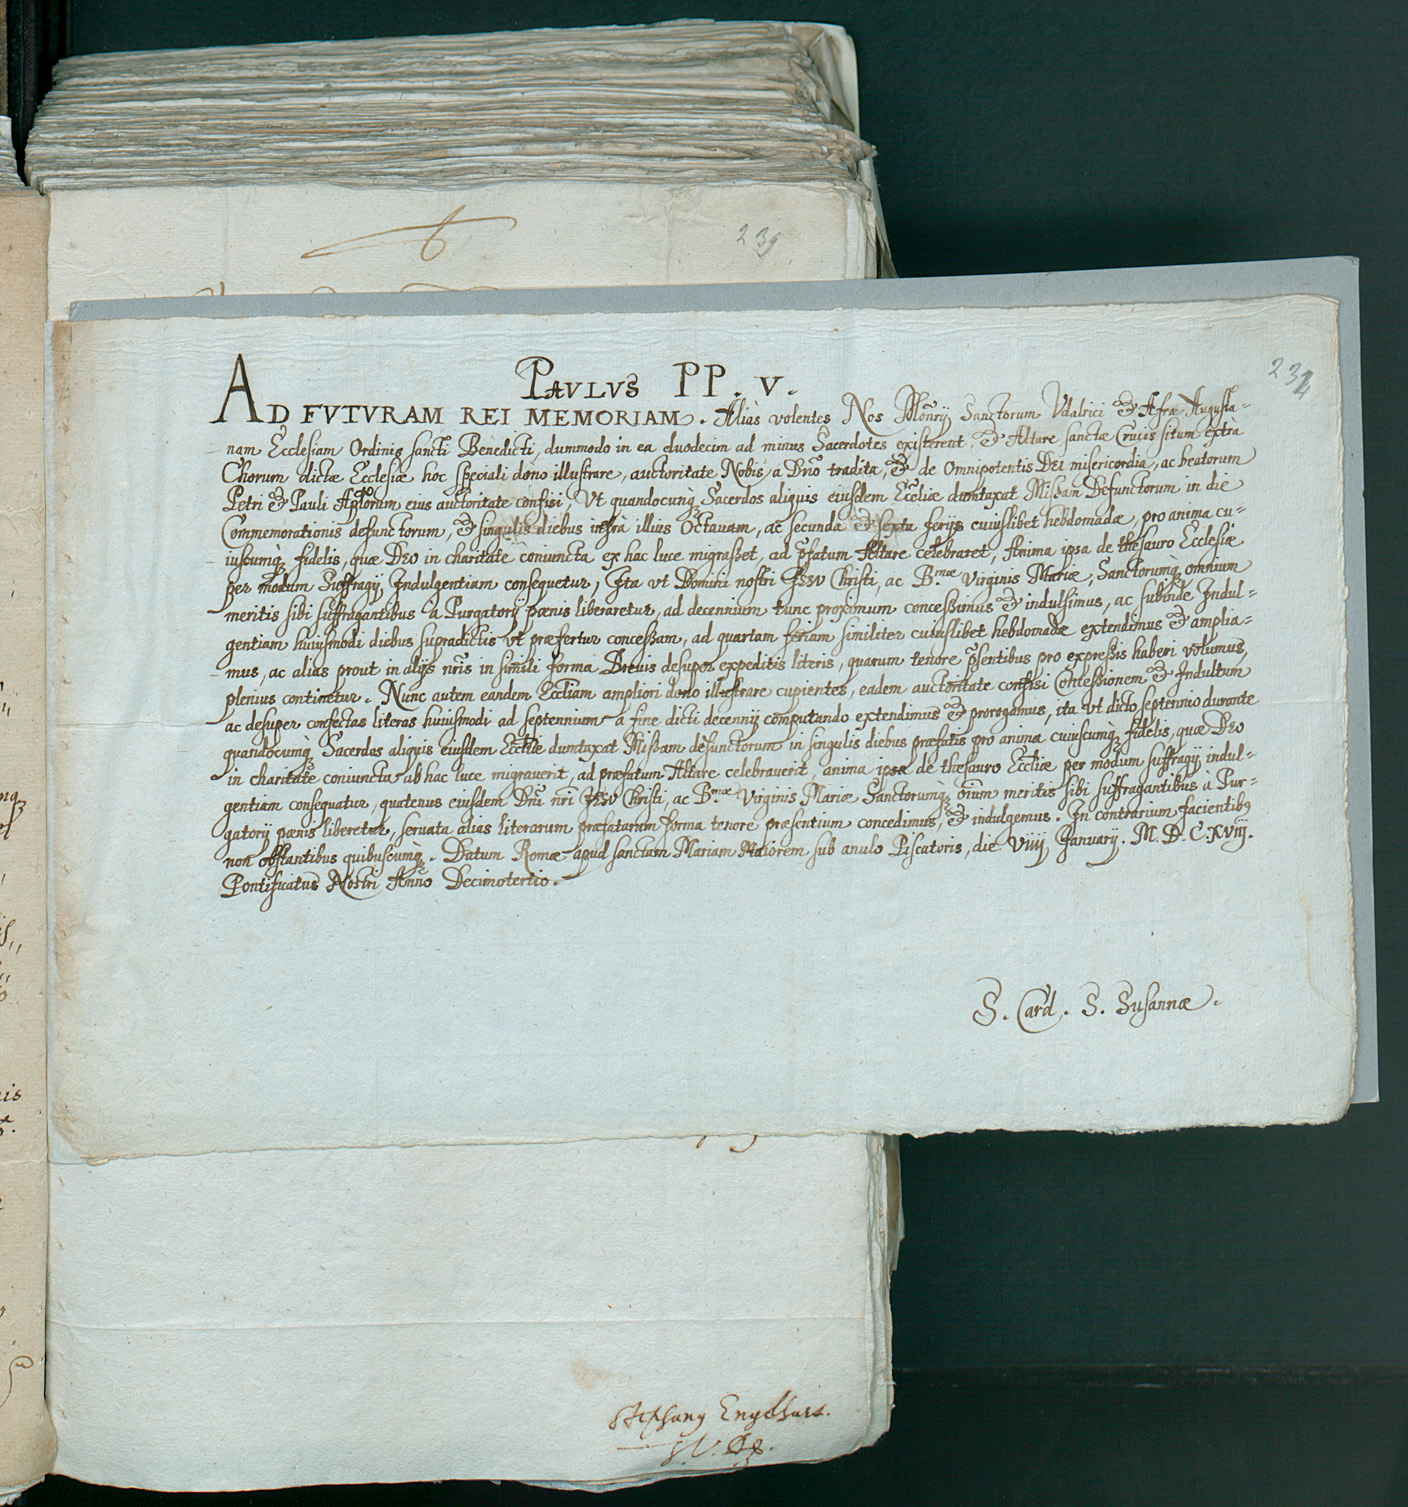 239
234
PAVLVS PP. V.
AD FVTVRAM REI MEMORIAM. Aliàs volentes Nos Monrÿ Sanctorum Vdalrici & Afræ Augusta-
nam Ecclesiam Ordinis sancti Benedicti, dummodo in ea duodecim ad minus Sacerdotes existerent, & Altare sanctæ Crucis situm extrà
Chorum dictæ Ecclesiæ hoc speciali dono illustrare, auctoritate Nobis à Dño tradita, & de Omnipotentis DEI misericordia, ac beatorum
Petri & Pauli Aplorum eius auctoritate confisi, Vt quandocunq; Sacerdos aliquis eiusdem Eccliæ dumtaxat Missam Defunctorum in die
Commemorationis defunctorum, & singulis diebus infrà illius Octauam, ac secunda & sexta ferijs cuiuslibet hebdomadæ, pro anima cu-
iuscumq; fidelis, quæ DEO in charitate coniuncta ex hac luce migrasset, ad p̃fatum Altare celebraret, Anima ipsa de thesauro Ecclesiæ
per modum Suffragij Indulgentiam consequetur, Ita vt Domini nostri IESV Christi, ac B.mæ Virginis Mariæ, Sanctorumq; omnium
meritis sibi suffragantibus à Purgatorij pœnis liberaretur, ad decennium tunc proximum concessimus & indulsimus, ac subinde Indul-
gentiam huiusmodi diebus supradictis vt præfertur concessam, ad quartam feriam similiter cuiuslibet hebdomadæ extendimus & amplia-
mus, ac alias prout in alijs nr̃is in simili forma Breuis desuper expeditis literis, quarum tenore p̃sentibus pro expressis haberi volumus,
plenius continetur. Nunc autem eandem Eccliam ampliori dono illustrare cupientes, eadem auctoritate confisi Concessionem & Indultum
ac desuper confectas literas huiusmodi ad septennium à fine dicti decennij computando extendimus & prorogamus, ita vt dicto septennio durante
quandocunq; Sacerdos aliquis eiusdem Eccliæ dumtaxat Missam defunctorum in singulis diebus præfatis pro anima cuiuscumq; fidelis, quæ DEO
in charitate coniuncta ab hac luce migrauerit, ad præfatum Altare celebrauerit, anima ipsa de thæsauro Eccliæ per modum suffragij indul-
gentiam consequatur, quatenus eiusdem Dñi nr̃i IESV Christi, ac B.mæ Virginis Mariæ Sanctorumq; oĩum meritis sibi suffragantibus à Pur-
gatorij pœnis liberetur, seruata alias literarum præfatarum forma tenore præsentium concedimus, & indulgemus. In contrarium facientibus
non obstantibus quibuscumq;. Datum Romæ apud sanctam Mariam Maiorem sub anulo Piscatoris, die Viiij Januarij. M.D.C.XViij.
Pontificatus Nostri Anno Decimotertio.
S. Card. S. Susannæ.